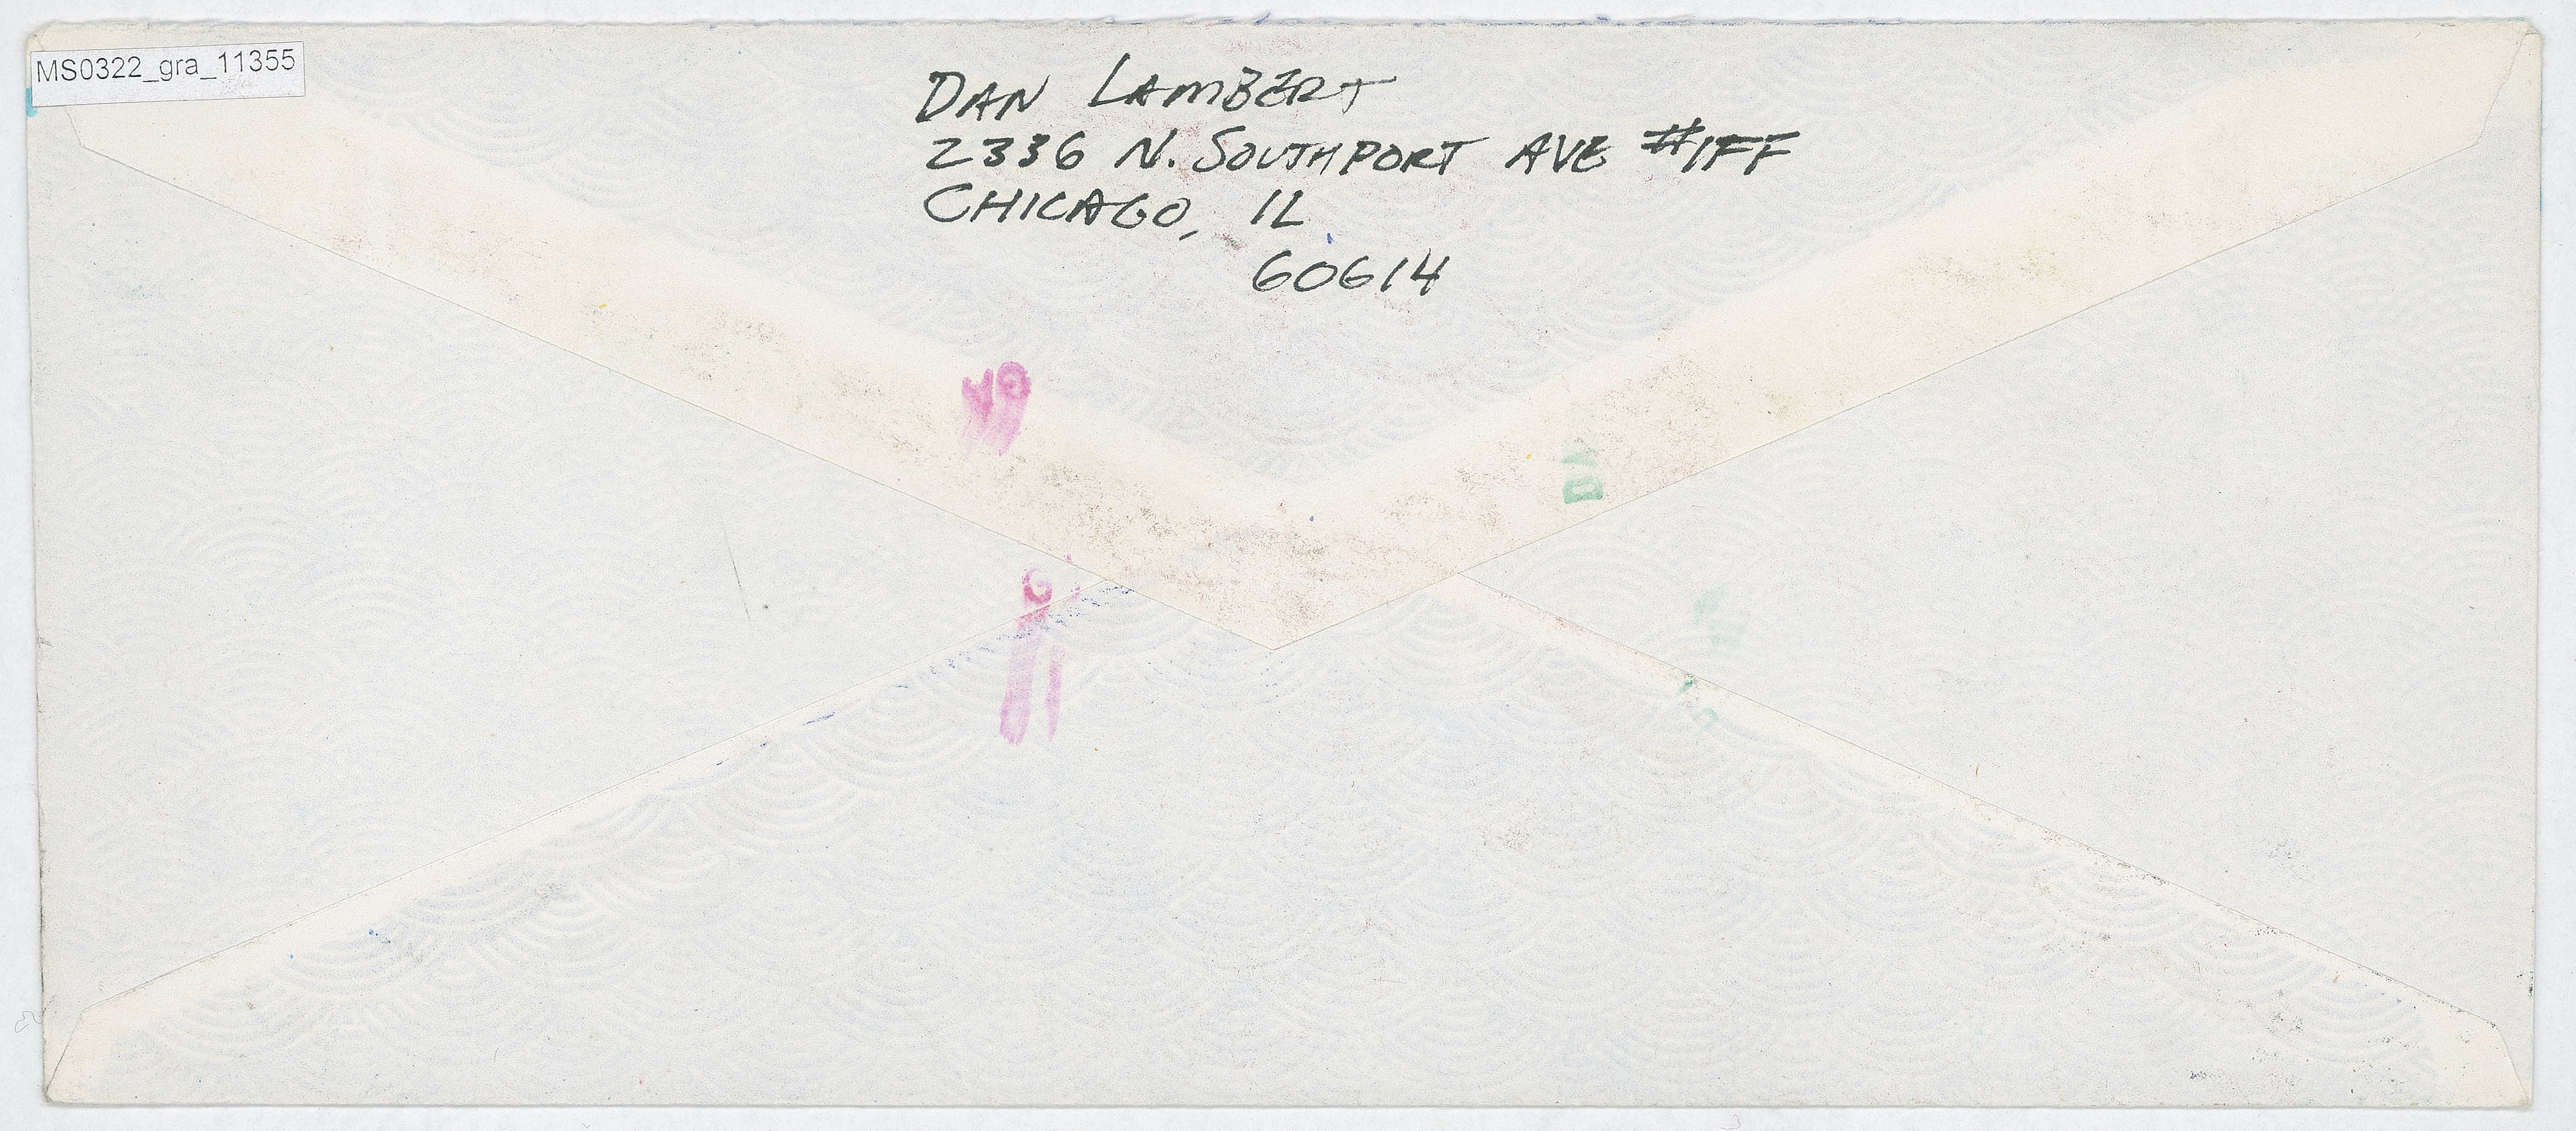 MS0322_gra_11355
DAN LAMBERT
2336 N. SOUTHPORT AVE #1FF
CHICAGO, IL
60614